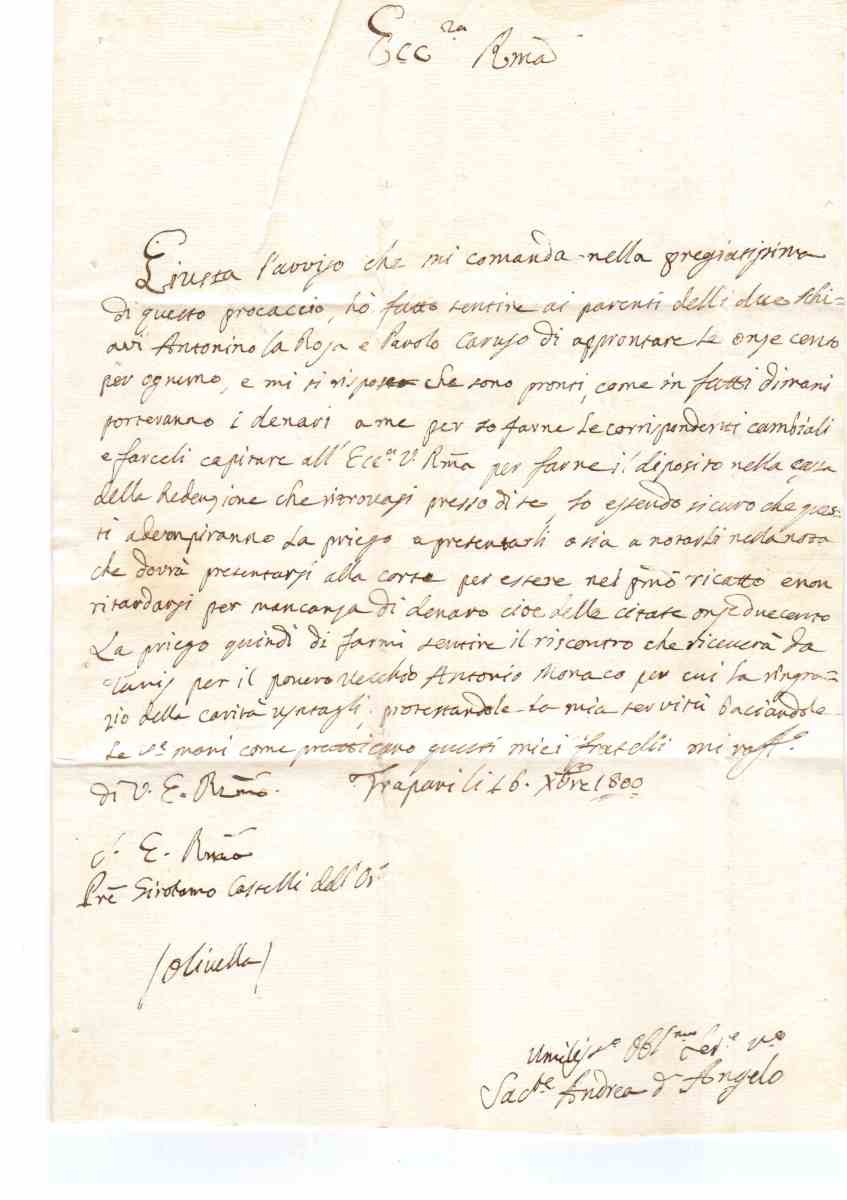 Ecc.za Rma
Giusta l'avviso che mi comanda nella pregiatissima
di questo procaccio, hò fatto sentire ai parenti delli due schi=
avi Antonino la Rosa e Pavolo Caruso di approntare le onze cento
per ognuno, e mi si rispose che sono pronti, come in fatti dimani
porteranno i denari a me per io farne le corrispondenti cambiali
e farceli capitare all' Ecc.za V. Rma per farne il deposito nella cassa
della Redenzione che ritrovasi presso di te, Io essendo sicuro che ques=
ti adempiranno La priego a presentarli o sia a notarli nella nota
che dovrà presentarsi alla corte per essere nel pmo ricatto e non
ritardarsi per mancanza di denaro cioe delle citate onze duecento
La priego quindi di farmi sentire il riscontro che riceverà da
Tunis per il povero vecchio Antonio Monaco per cui la ringra=
zio della carità usatagli, protestandole la mia servitù baciandole
le s.e mani come praticano questi miei fratelli mi raff.o
di V. E. Rma. Trapani li 16. Xbre 1800
S. E. Rma
Pre Girolamo Castelli dell' Or.
(Olivella)
Umiliss.o Obl.mo Ser.e v.o
Sac.te Andrea d'Angelo